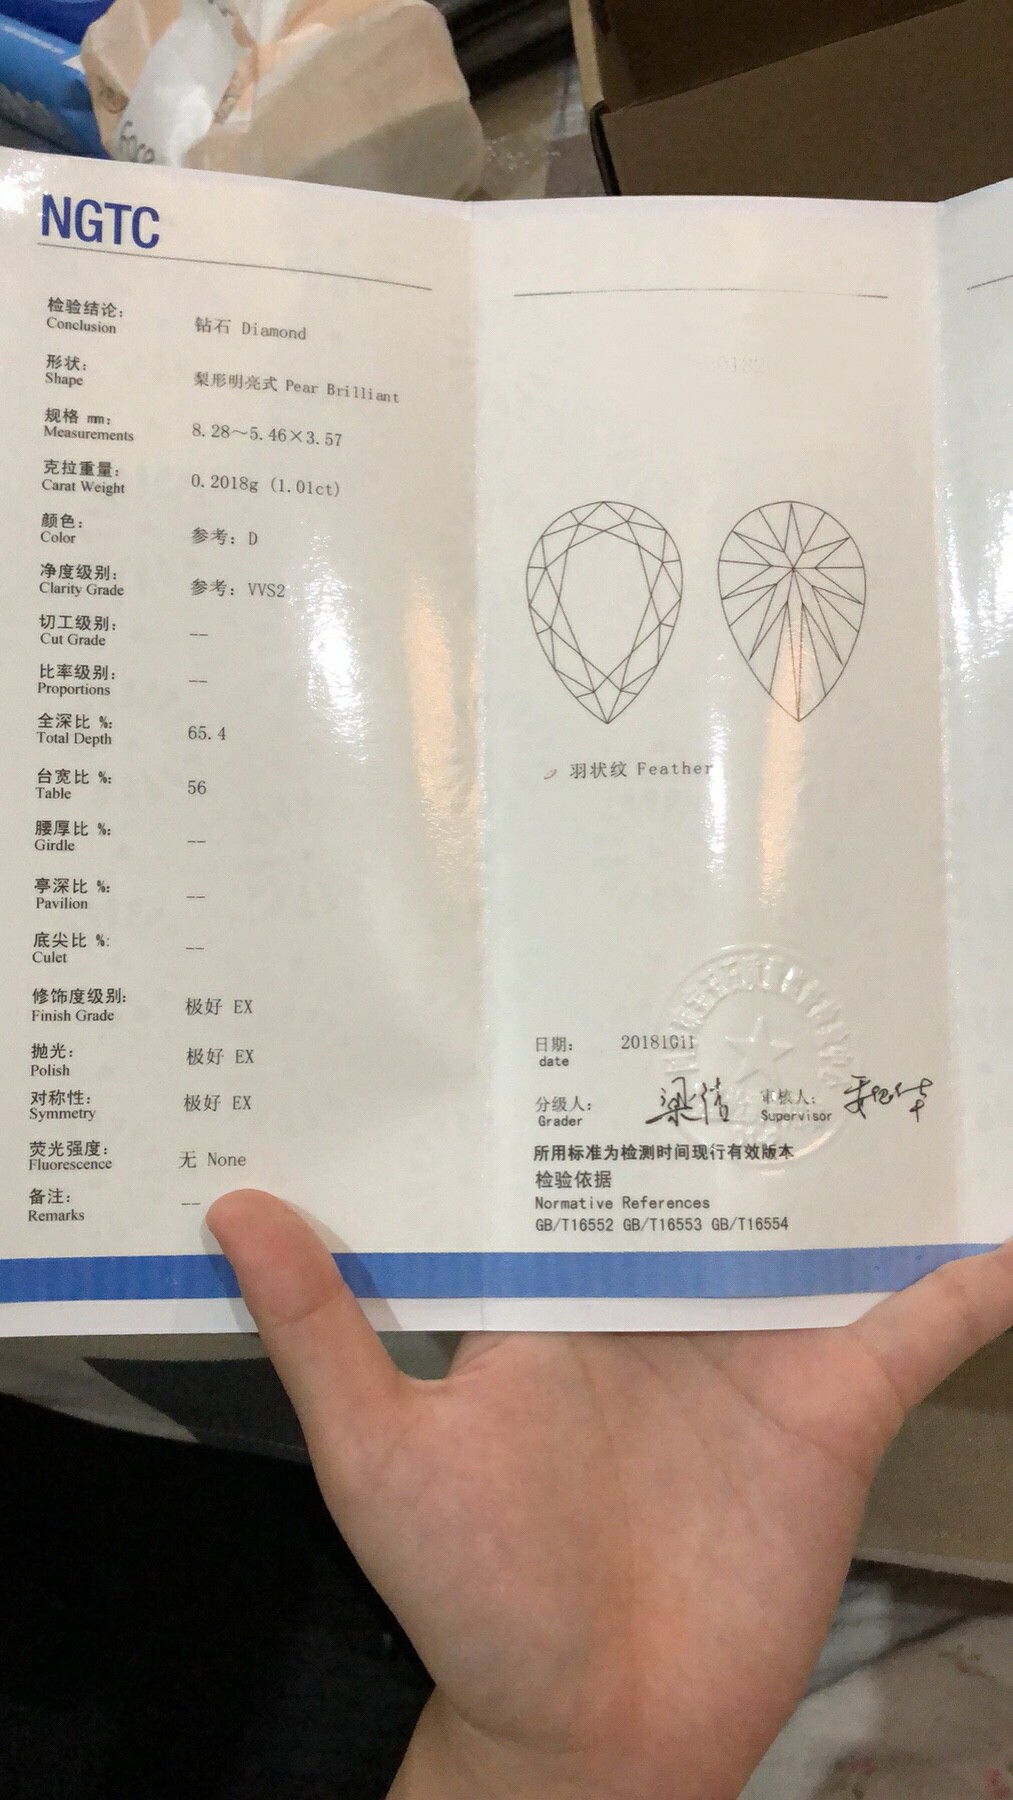 Face
NGTC
检验结论: 钻石 Diamond
Conclusion
形状: 梨形明亮式 Pear Brilliant
Shape
规格 mm: 8.28～5.46×3.57
Measurements
克拉重量: 0.2018g (1.01ct)
Carat Weight
颜色: 参考: D
Color
净度级别: 参考: VVS2
Clarity Grade
切工级别: --
Cut Grade
比率级别: --
Proportions
全深比 %: 65.4
Total Depth
台宽比 %: 56
Table
腰厚比 %: --
Girdle
亭深比 %: --
Pavilion
底尖比 %: --
Culet
修饰度级别: 极好 EX
Finish Grade
抛光: 极好 EX
Polish
对称性: 极好 EX
Symmetry
荧光强度: 无 None
Fluorescence
备注: --
Remarks
羽状纹 Feather
日期: 20181011
date
分级人: 审核人:
Grader Supervisor
所用标准为检测时间现行有效版本
检验依据
Normative References
GB/T16552 GB/T16553 GB/T16554